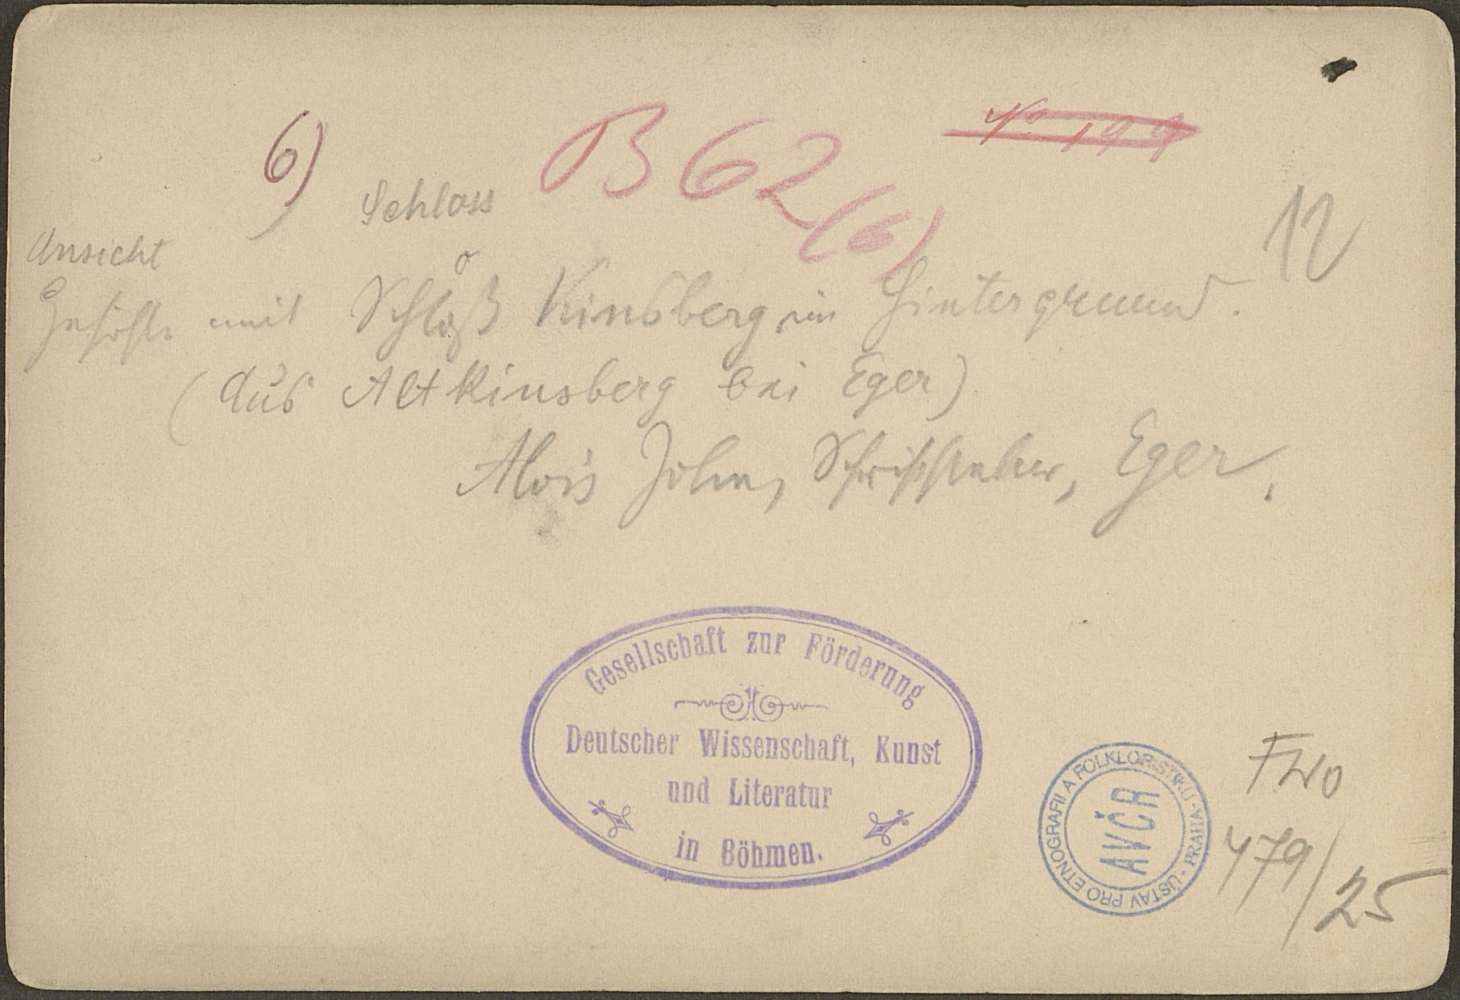 6)
B 62 (6)
No 199
Schloss
12
Ansicht
Gehöfte mit Schloß Kinsberg im Hintergrund.
(Aus Altkinsberg bei Eger)
Alois John, Schriftsteller, Eger.
Gesellschaft zur Förderung
Deutscher Wissenschaft, Kunst
und Literatur
in Böhmen.
ÚSTAV PRO ETNOGRAFII A FOLKLORISTIKU - PRAHA -
AVČR
479/25